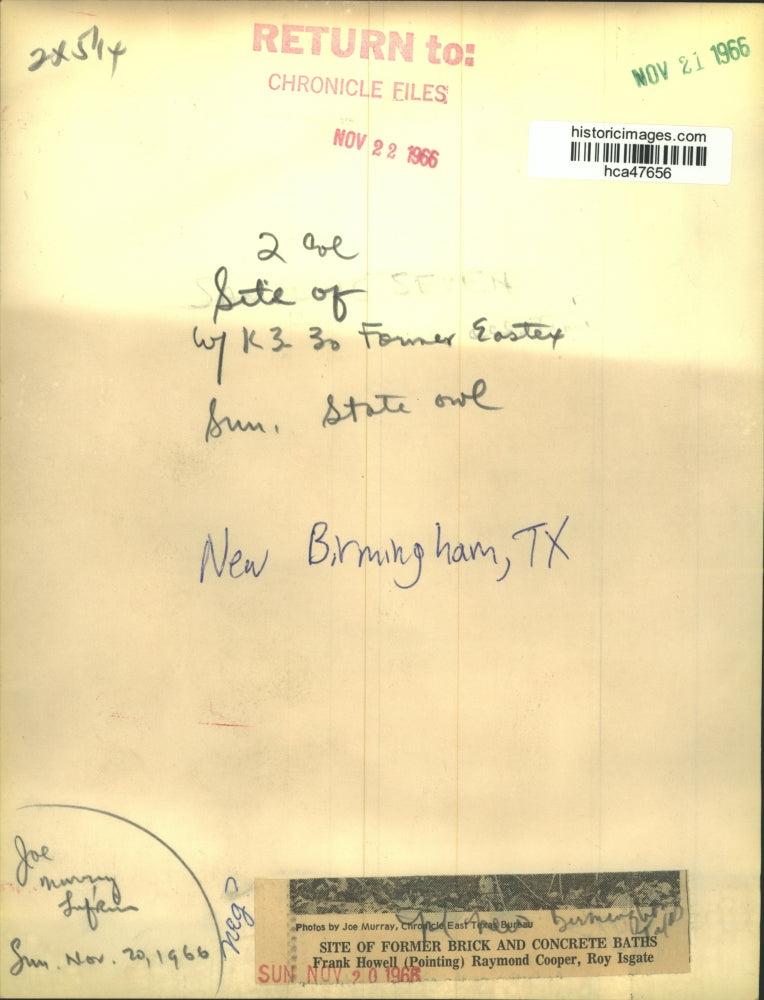 2x5 1/4
RETURN to:
CHRONICLE FILES
NOV 21 1966
NOV 22 1966
historicimages.com
hca47656
2 col
Site of
w/ K3 30 Former Eastex
Sun. State owl
New Birmingham, TX
Joe
Murray
Lufkin
Sun. Nov. 20, 1966
neg?
Photos by Joe Murray, Chronicle East Texas Bureau
SITE OF FORMER BRICK AND CONCRETE BATHS
Frank Howell (Pointing) Raymond Cooper, Roy Isgate
SUN NOV 20 1966